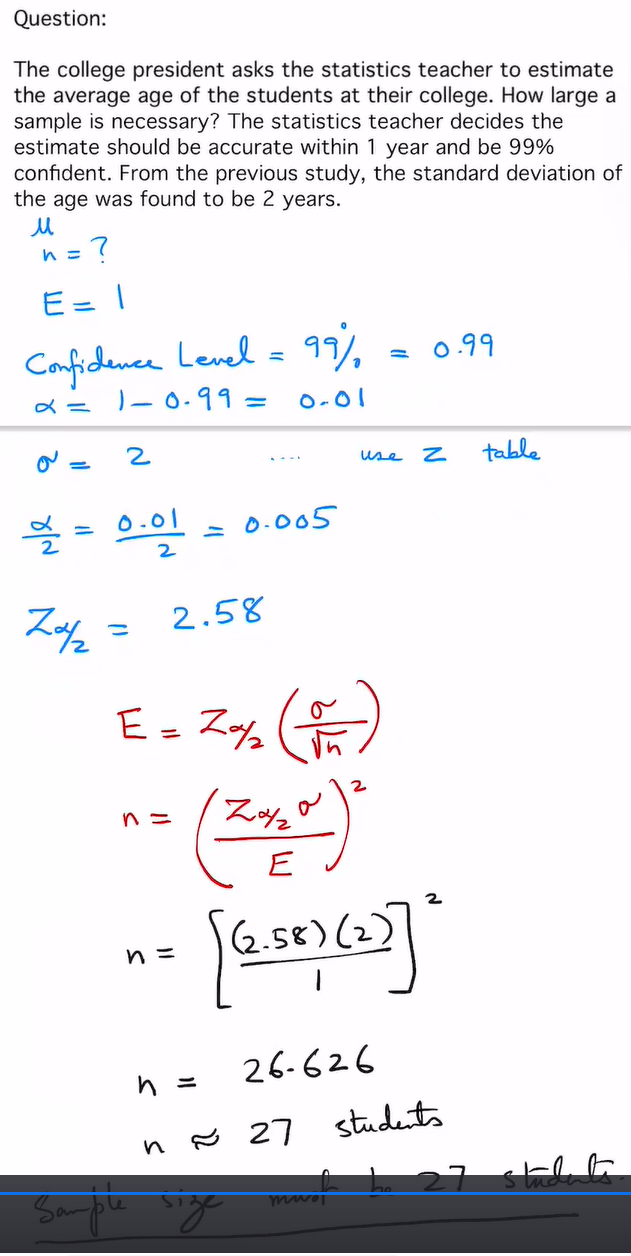 Question:
The college president asks the statistics teacher to estimate
the average age of the students at their college. How large a
sample is necessary? The statistics teacher decides the
estimate should be accurate within 1 year and be 99%
confident. From the previous study, the standard deviation of
the age was found to be 2 years.
μ
n = ?
E = 1
Confidence Level = 99% = 0.99
α = 1 - 0.99 = 0.01
σ = 2 .... use Z table
α/2 = 0.01/2 = 0.005
Zα/2 = 2.58
E = Zα/2 (σ/√n)
n = (Zα/2 σ / E)²
n = [(2.58)(2) / 1]²
n = 26.626
n ≈ 27 students
Sample size must be 27 students.